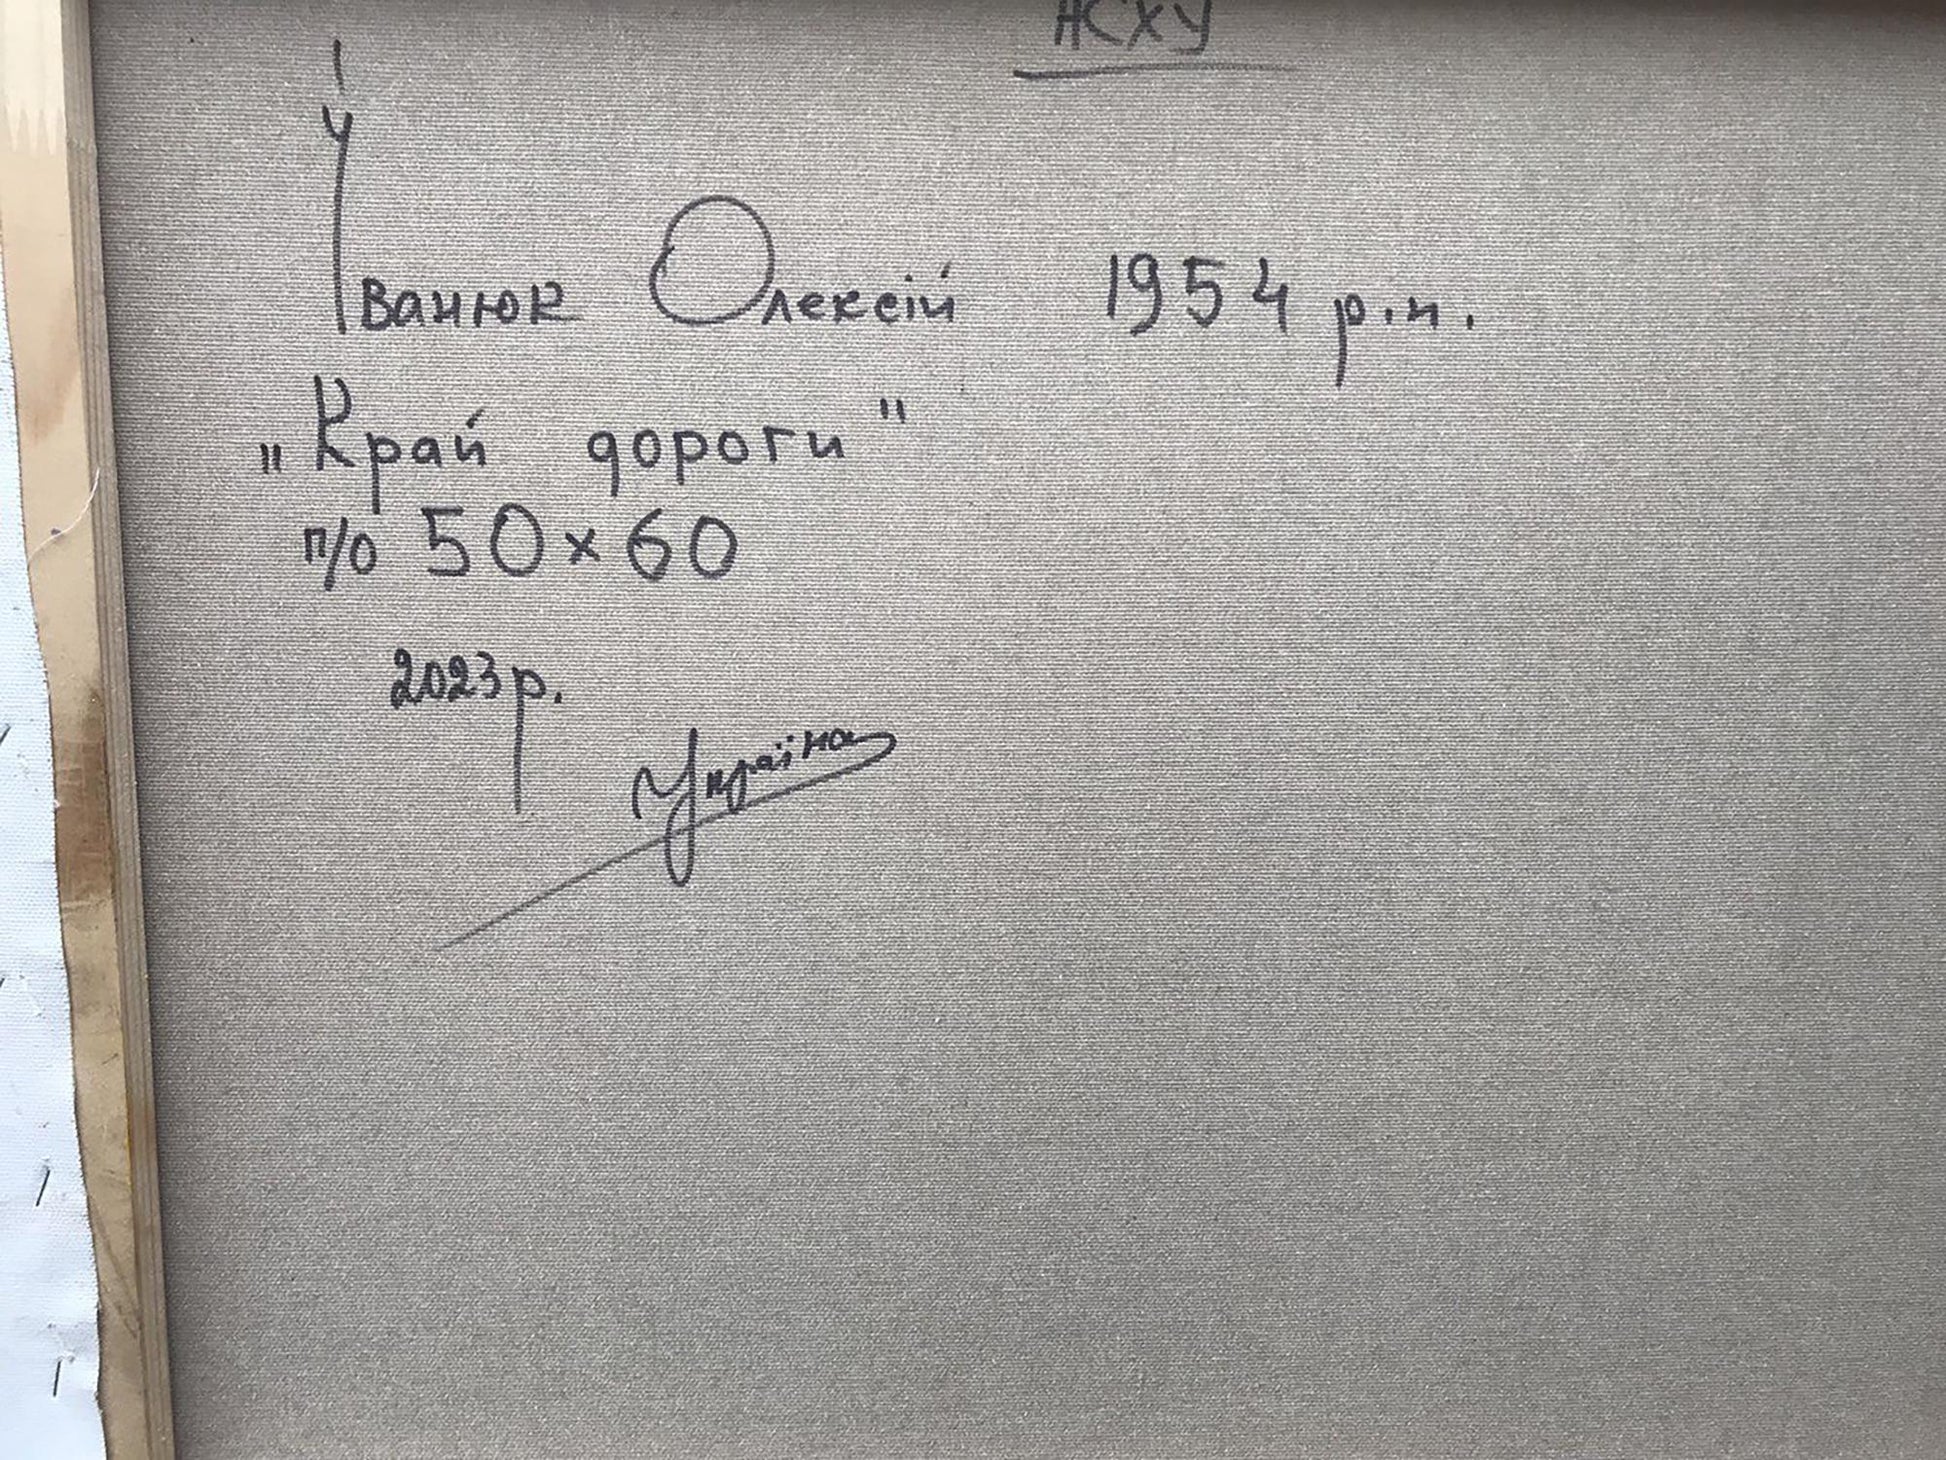 ЖСХУ
Іванюк Олексій 1954 р.н.
„Край дороги"
п/о 50×60
2023р.
Україна